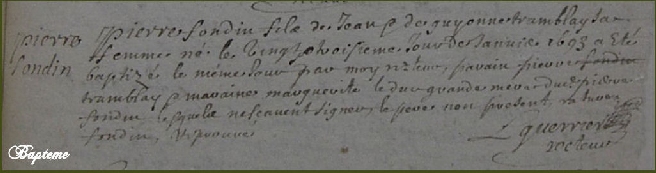 pierre
sondin
pierre sondin fils de Jean & de guyonne tramblay sa
femme né le vingt et troisieme Jour de Janvier 1693 a Eté
baptizé le même Jour par moy parain pierre sondin
tramblay & maraine marguerite le duc grande mere du pierre
sondin le ne scavent signer le pere non present
sondin approuvé
guerrier
recteur
Bapteme